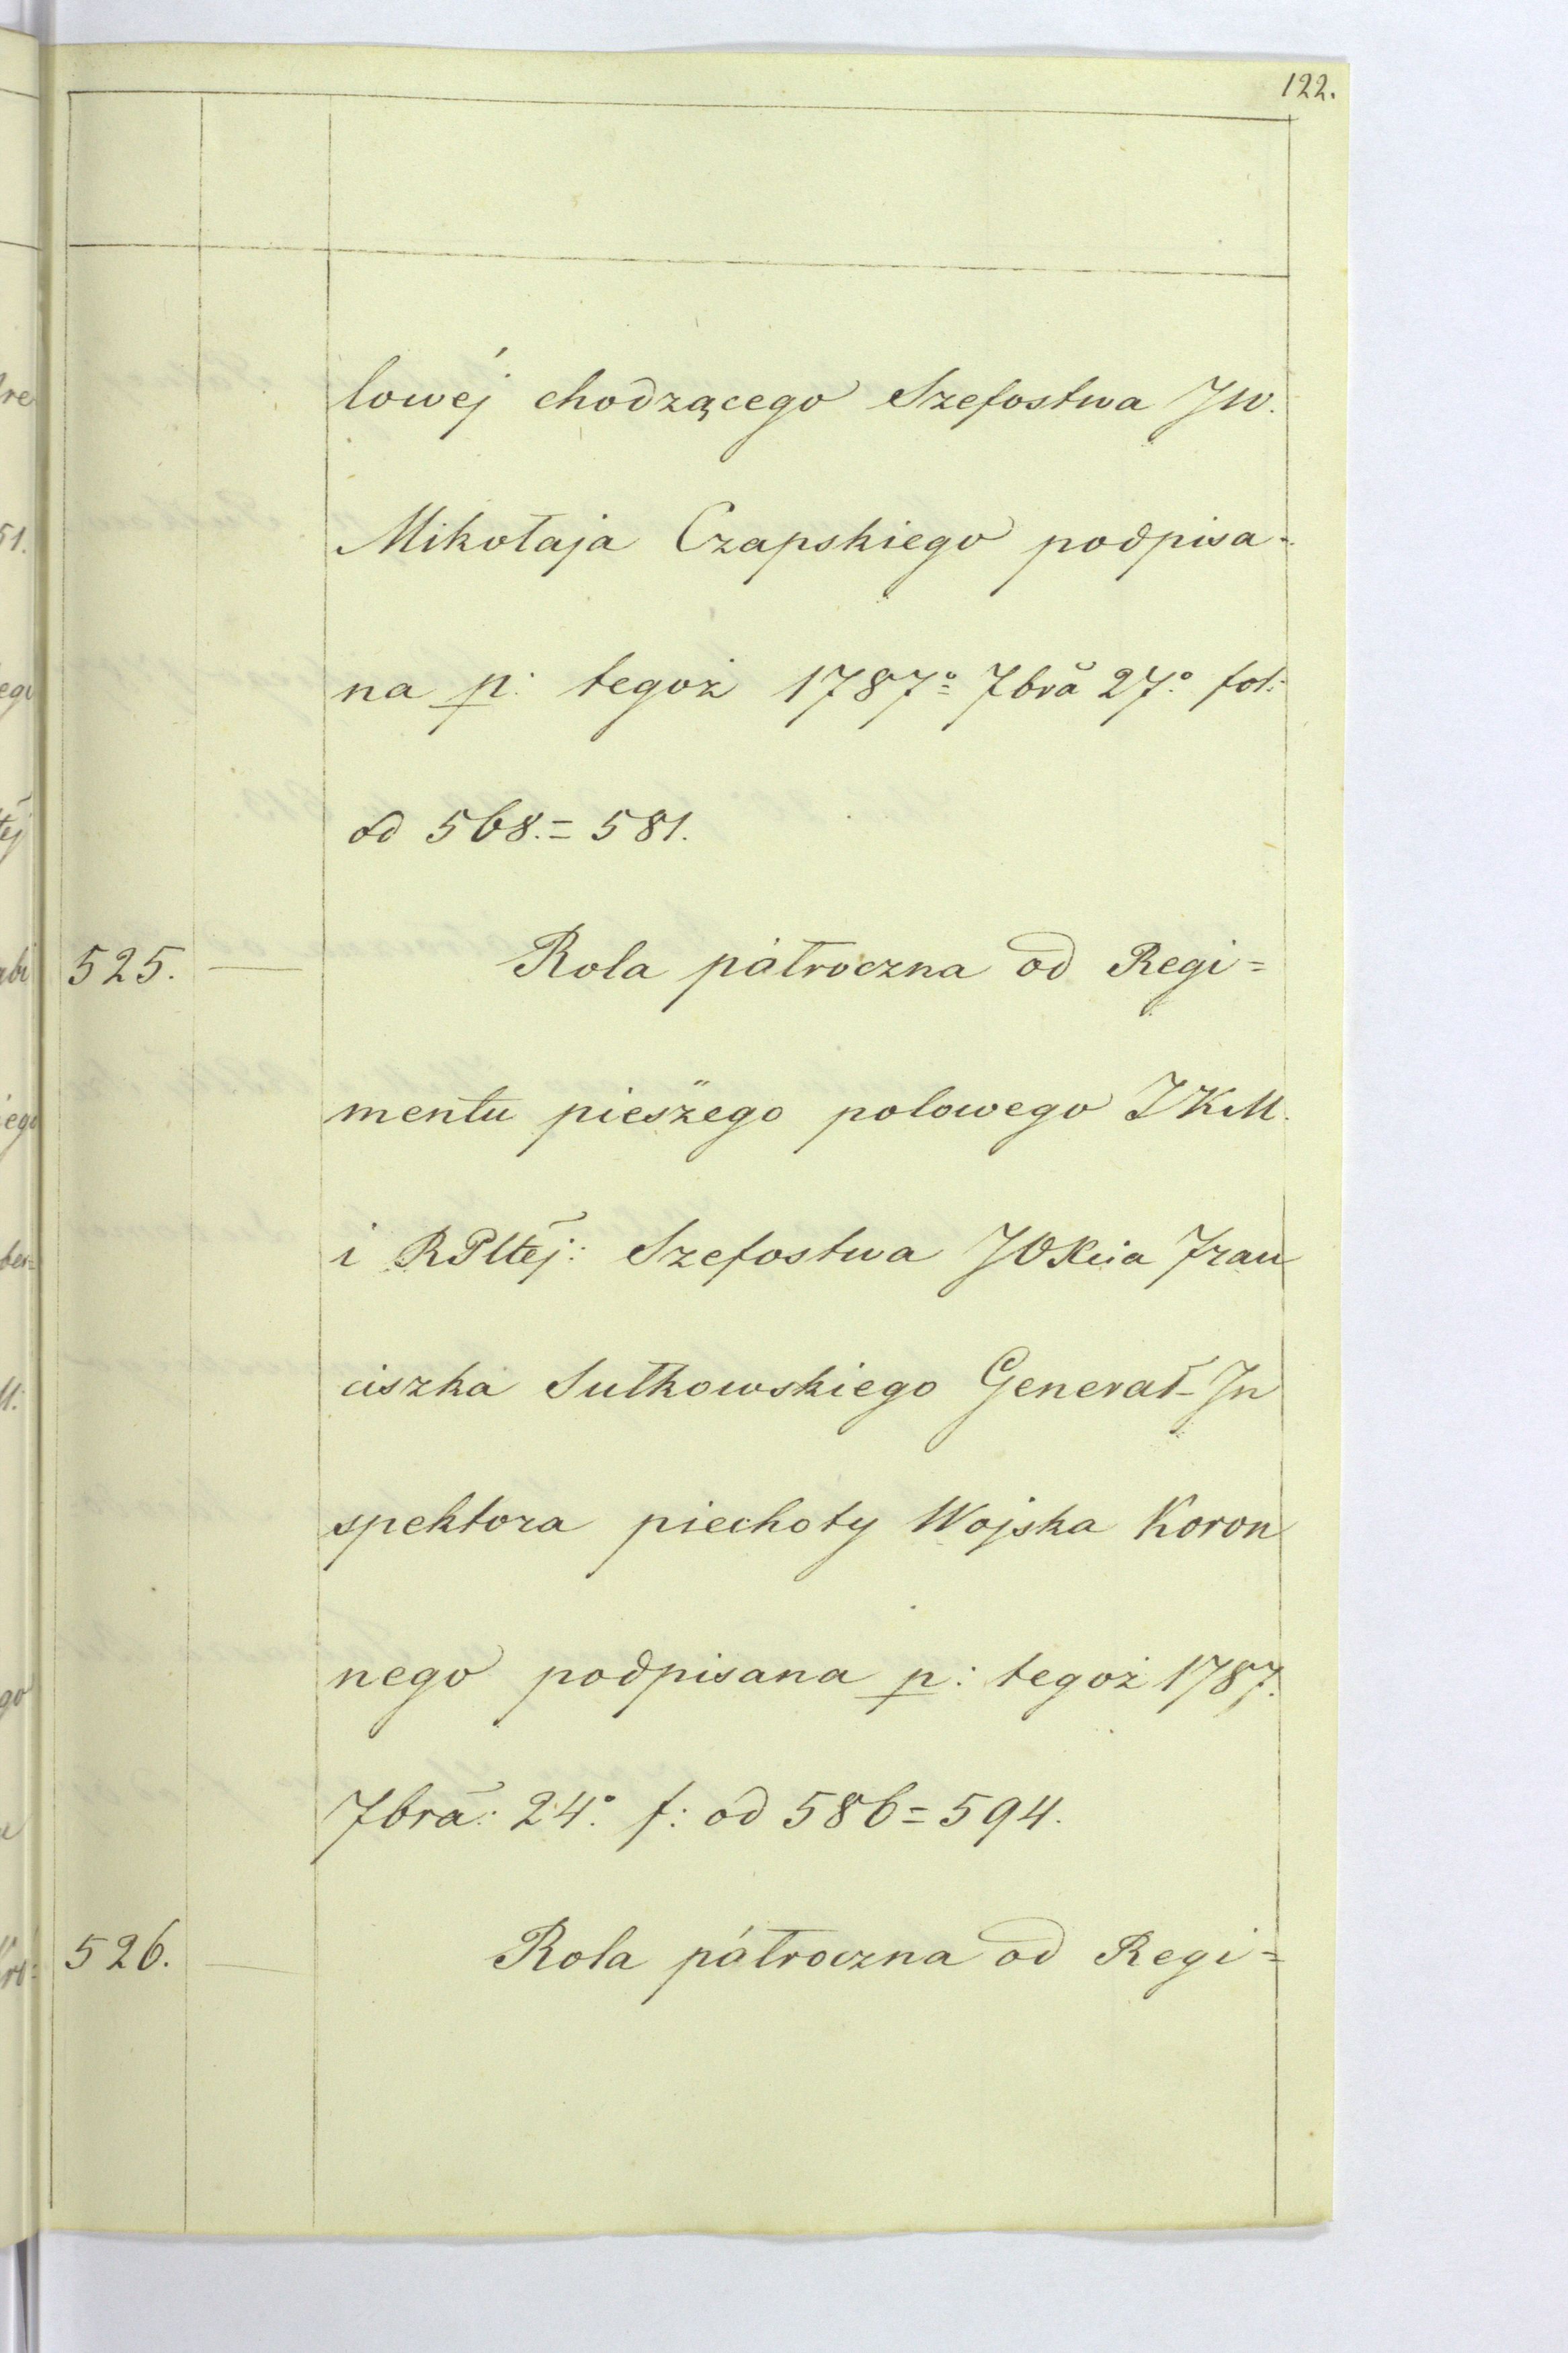 122.
lowéj chodzącego Szefostwa JW.
Mikołaja Czapskiego podpisa-
na p: tegoż 1787º 7brã 27º fol:
od 568.=581.
525. — Rola półroczna od Regi=
mentu pieszego polowego JKM.
i RPltéj: Szefostwa JOXcia Fran
ciszka Sułkowskiego Generał-In
spektora piechoty Wojska Koron
nego podpisana p: tegoż 1787.
7brã: 24º f: od 586=594.
526. — Rola półroczna od Regi=